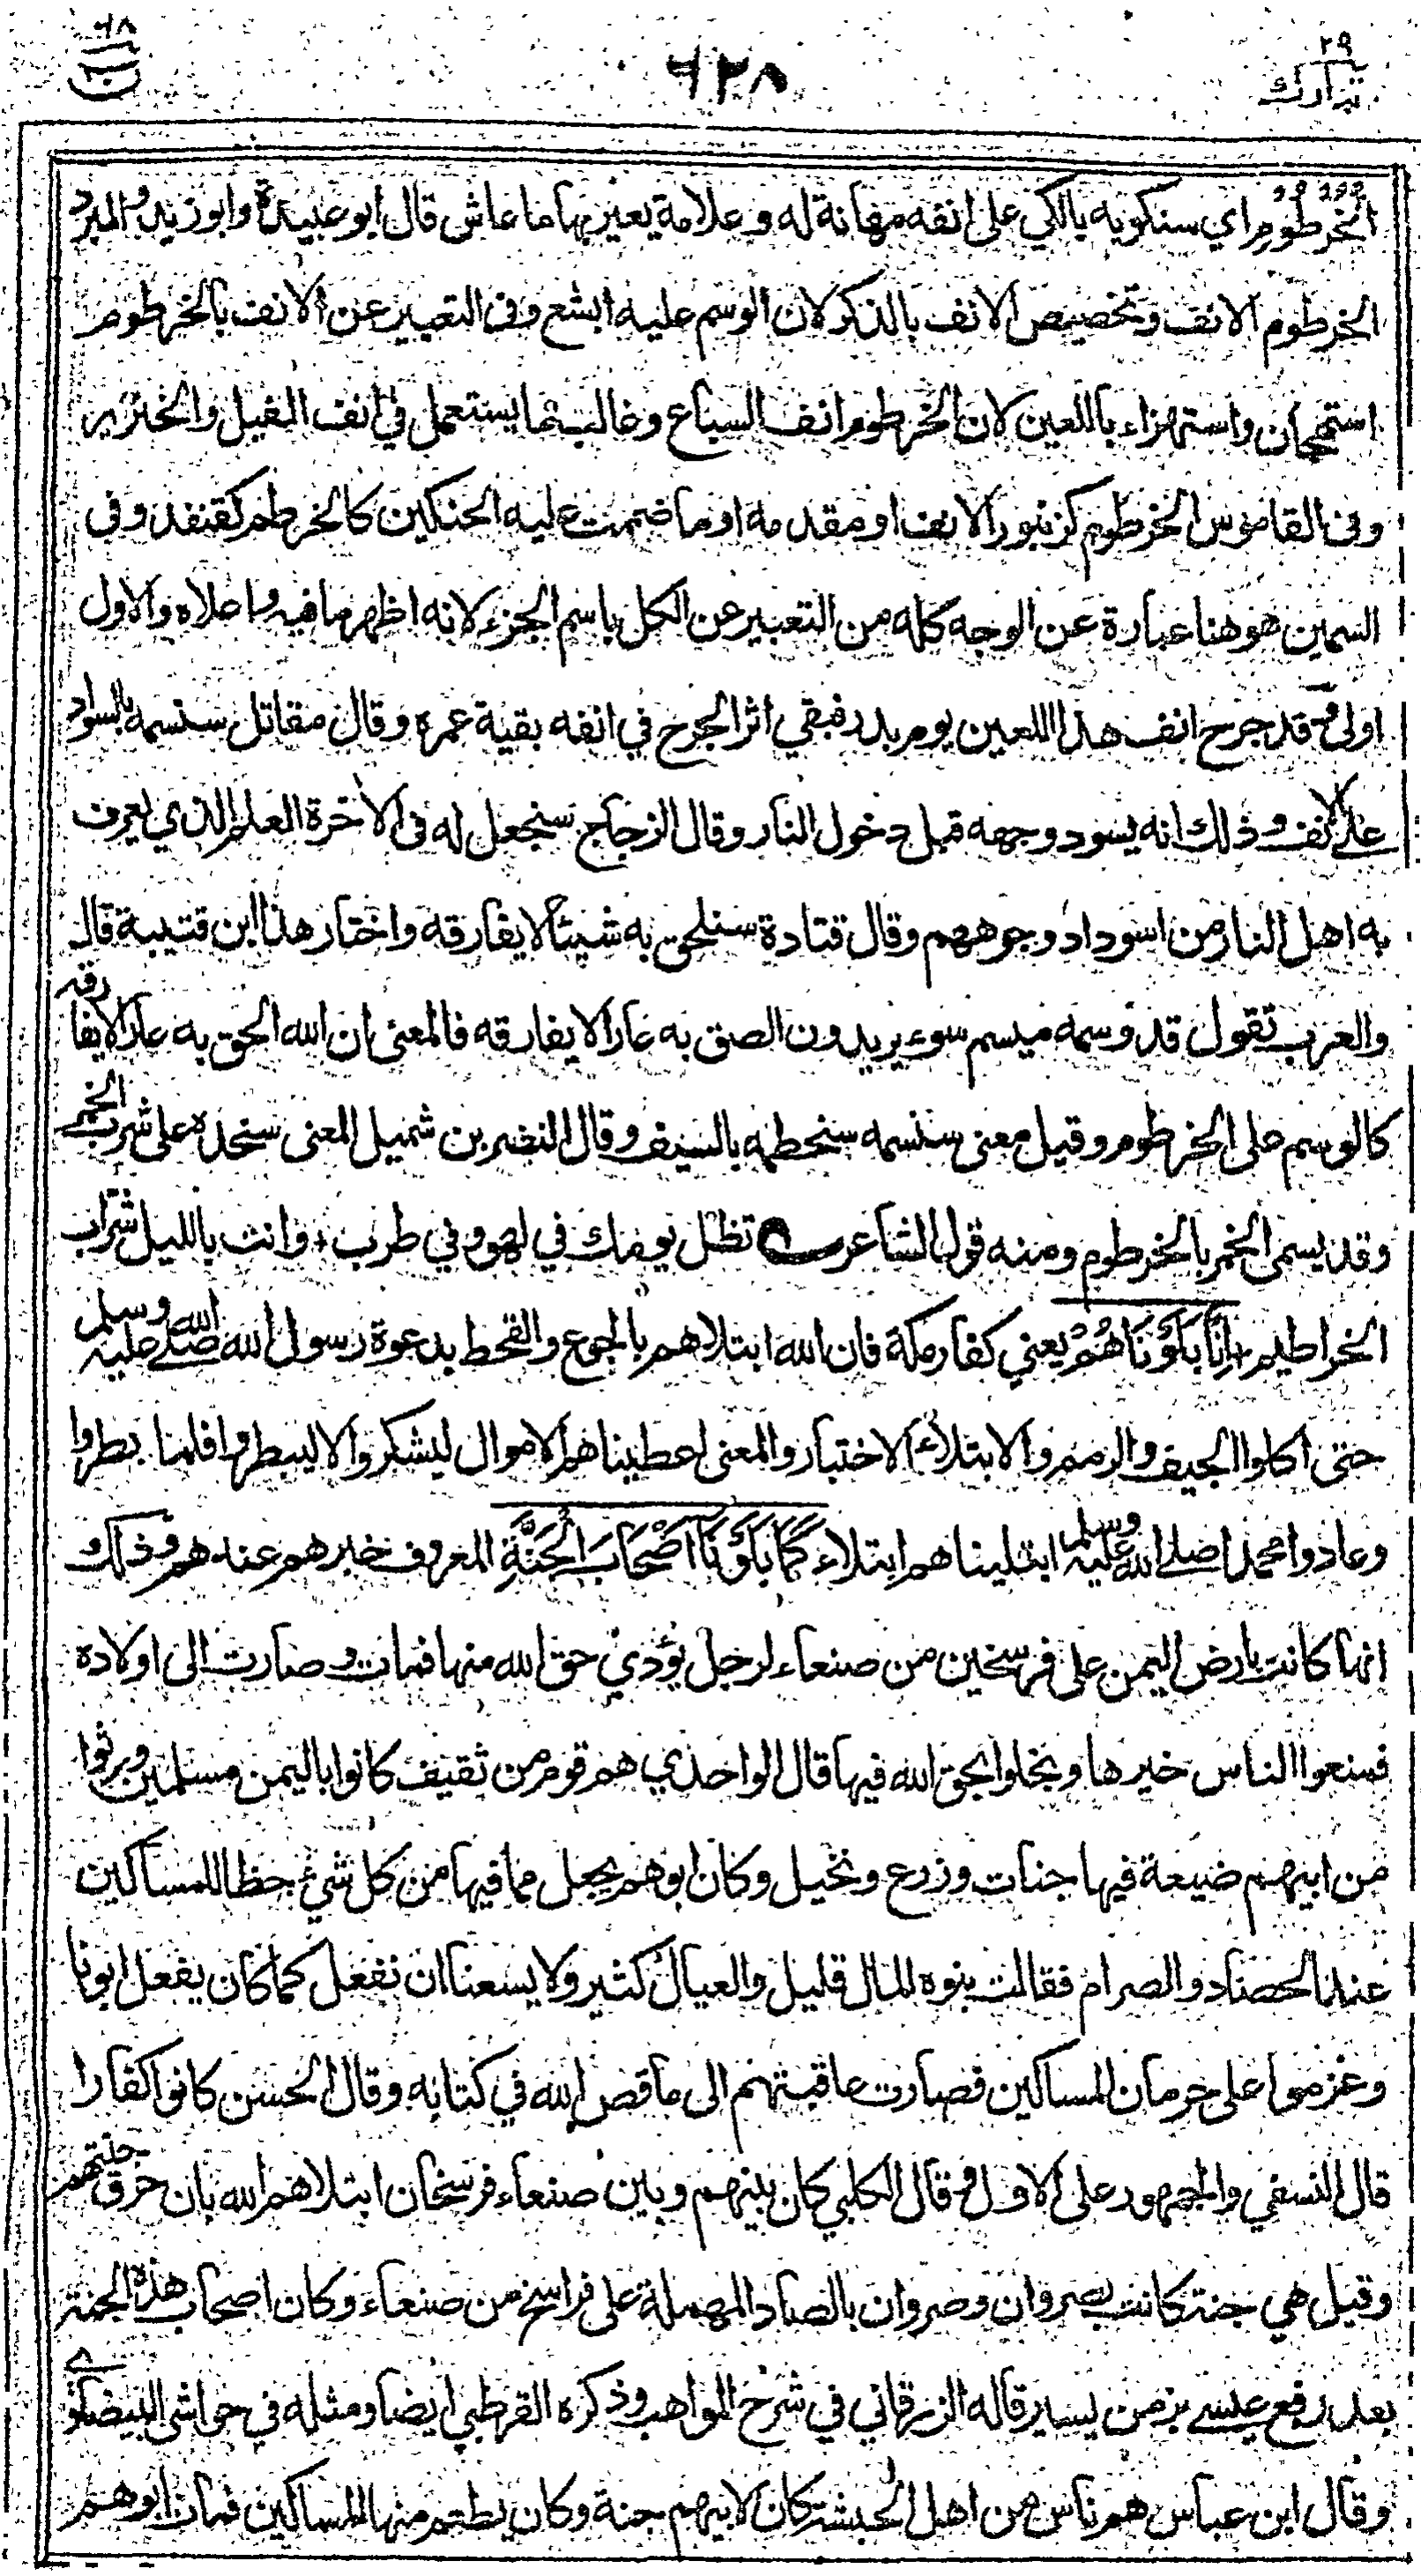 ٢٩
تبارك
٦٢٨
٦٨
ن
الخُرْطُوْمِ اي سنكويه بالكي على انفه مهانة له وعلامة يعير بها ما عاش قال ابو عبيدة وابو زيد والمبرد
الخرطوم الانف وتخصيص الانف بالذكر لان الوسم عليه ابشع وفى التعبير عن الانف بالخرطوم
استهجان واستهزاء باللعين لان الخرطوم انف السباع وغالب ما يستعمل في انف الفيل والخنزير
وفى القاموس الخرطوم كزنبور الانف او مقدمه او ما ضممت عليه الحنكين كالخرطم كقنفذ وفى
السمين هو هنا عبارة عن الوجه كله من التعبير عن الكل باسم الجزء لانه اظهر ما فيه واعلاه والاول
اولى وقد جرح انف هذا اللعين يوم بدر فبقي اثر الجرح في انفه بقية عمره وقال مقاتل سنسمه بالسواد
على الانف وذلك انه يسود وجهه قبل دخول النار وقال الزجاج سنجعل له فى الأخرة العلم الذي يعرف
به اهل النار من اسوداد وجوههم وقال قتادة سنلحق به شيئا لا يفارقه واختار هذا ابن قتيبة قال
والعرب تقول قد وسمه ميسم سوء يريدون الصق به عارا لا يفارقه فالمعنى ان الله الحق به عارا لا يفارقه
كالوسم على الخرطوم وقيل معنى سنسمه سنحطمه بالسيف وقال النضر بن شميل المعنى سنحده على شرب الخمر
وقد يسمى الخمر بالخرطوم ومنه قول الشاعر تظل يومك في لهو وفي طرب + وانت بالليل شراب
الخراطيم + اِنَّا بَلَوْنَاهُمْ يعني كفار مكة فان الله ابتلاهم بالجوع والقحط بدعوة رسول الله صلى الله عليه وسلم
حتى اكلوا الجيف والرمم والابتلاء الاختبار والمعنى اعطيناهم الاموال ليشكروا لا ليبطروا فلما بطروا
وعادوا محمدا صلى الله عليه وسلم ابتليناهم ابتلاء كَمَا بَلَوْنَا اَصْحَابَ الْجَنَّةِ المعروف خبرهم عندهم وذلك
انها كانت بارض اليمن على فرسخين من صنعاء لرجل يؤدي حق الله منها فمات وصارت الى اولاده
فمنعوا الناس خيرها وبخلوا بحق الله فيها قال الواحدي هم قوم من ثقيف كانوا باليمن مسلمين ورثوا
من ابيهم ضيعة فيها جنات وزرع ونخيل وكان ابوهم يجعل مما فيها من كل شئ حظا للمساكين
عند الحصاد والصرام فقالت بنوه المال قليل والعيال كثير ولا يسعنا ان نفعل كما كان يفعل ابونا
وعزموا على حرمان المساكين فصارت عاقبتهم الى ما قص الله في كتابه وقال الحسن كانوا كفارا
قال النسفي والجمهور على الاول وقال الكلبي كان بينهم وبين صنعاء فرسخان ابتلاهم الله بان حرق جنتهم
وقيل هي جنة كانت بصروان وصروان بالصاد المهملة على فراسخ من صنعاء وكان اصحاب هذه الجنة
بعد رفع عيسى بزمن يسير قاله الزرقاني في شرح المواهب وذكره القرطبي ايضا ومثله في حواشي البيضاوي
وقال ابن عباس هم ناس من اهل الحبشة كان لابيهم جنة وكان يطعم منها المساكين فمات ابوهم